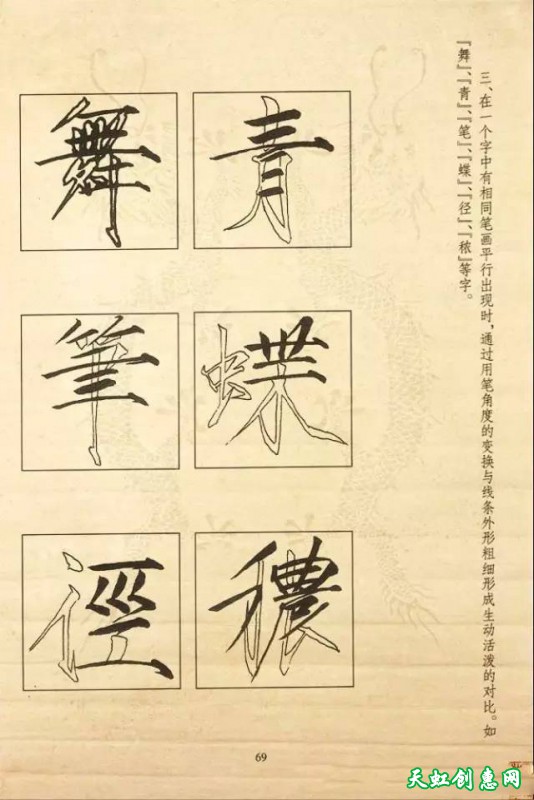 三、在一个字中有相同笔画平行出现时，通过用笔角度的变换与线条外形粗细形成生动活泼的对比。如
『舞』、『青』、『笔』、『蝶』、『径』、『秾』等字。
青
舞
蝶
筆
穠
徑
69
天虹创惠网